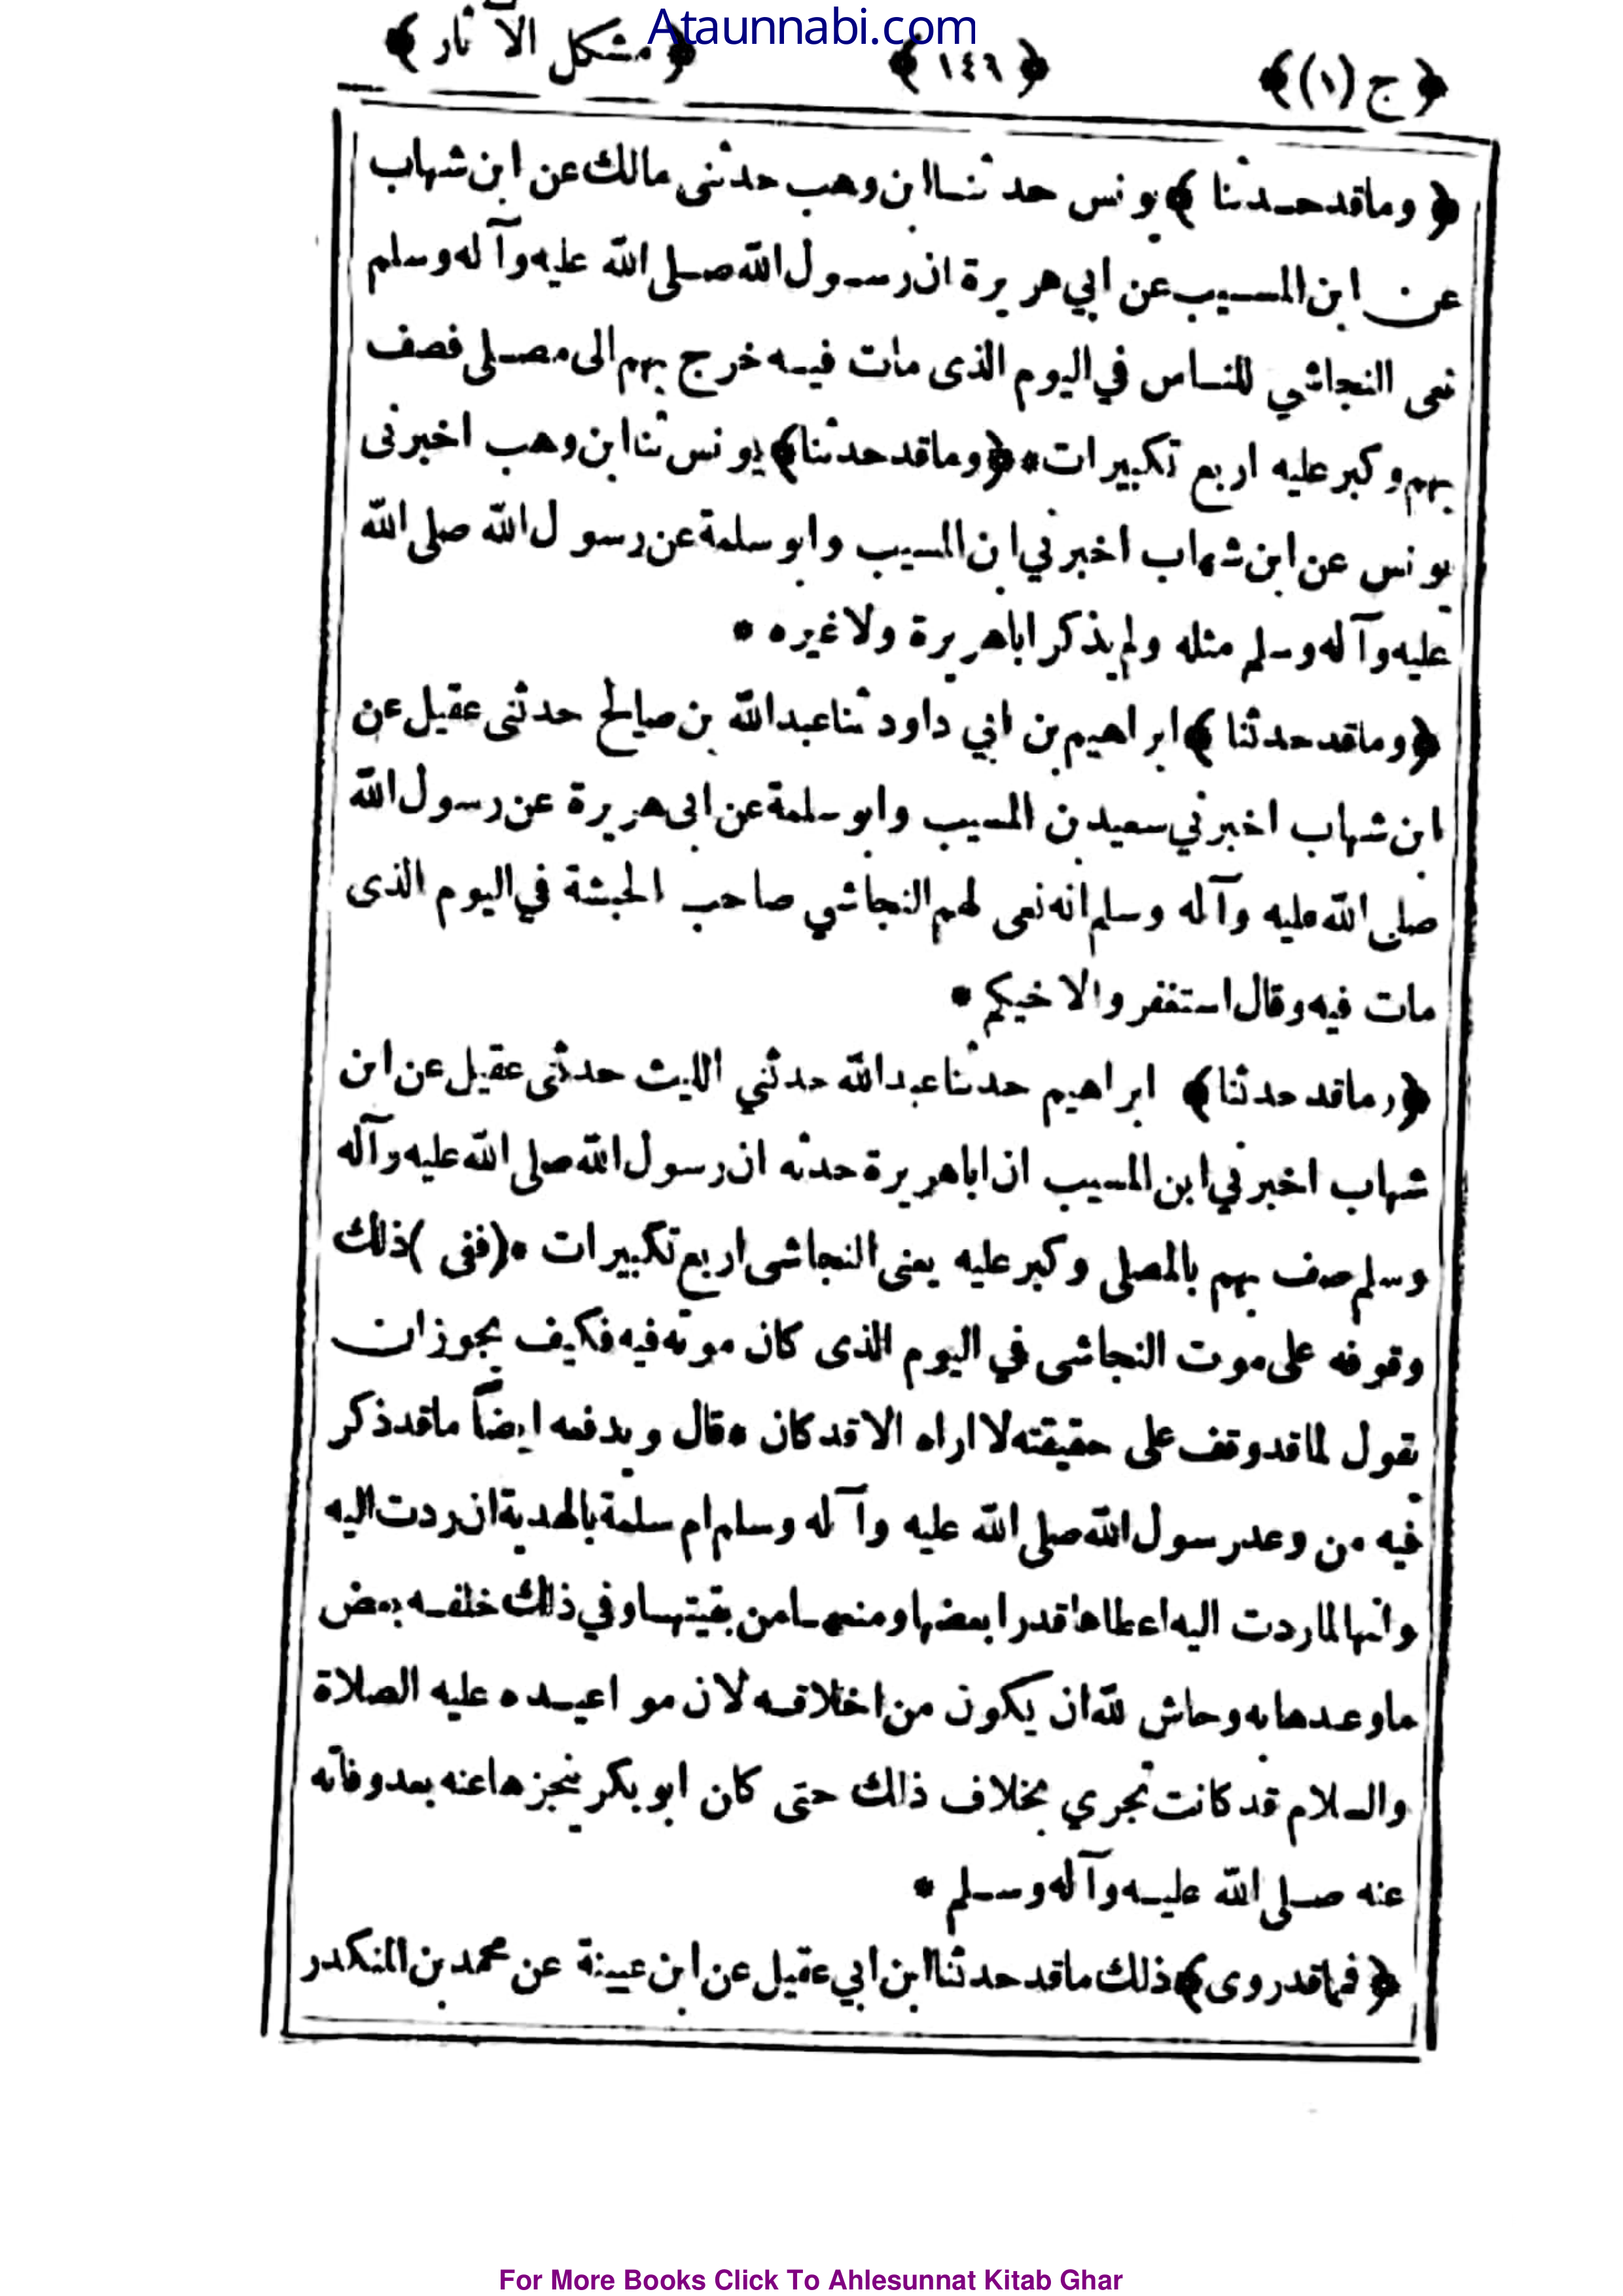 Ataunnabi.com
﴿ ج (١) ﴾ ﴿ ١٤٦ ﴾ ﴿ مشكل الآثار ﴾
﴿ وماقد حدثنا ﴾ يونس حدثنا ابن وهب حدثنى مالك عن ابن شهاب
عن ابن المسيب عن ابي هريرة ان رسول الله صلى الله عليه وآله وسلم
نعى النجاشي للناس في اليوم الذى مات فيه خرج بهم الى مصلى فصف
بهم وكبر عليه اربع تكبيرات * ﴿ وماقد حدثنا ﴾ يونس ثنا ابن وهب اخبرنى
يونس عن ابن شهاب اخبرني ابن المسيب وابو سلمة عن رسول الله صلى الله
عليه وآله وسلم مثله ولم يذكر اباهريرة ولا غيره *
﴿ وماقد حدثنا ﴾ ابراهيم بن ابي داود ثنا عبدالله بن صالح حدثنى عقيل عن
ابن شهاب اخبرني سعيد بن المسيب وابو سلمة عن ابى هريرة عن رسول الله
صلى الله عليه وآله وسلم انه نعى لهم النجاشي صاحب الحبشة في اليوم الذى
مات فيه وقال استغفروا لاخيكم *
﴿ وماقد حدثنا ﴾ ابراهيم حدثنا عبدالله حدثني الليث حدثنى عقيل عن ابن
شهاب اخبرني ابن المسيب ان اباهريرة حدثه ان رسول الله صلى الله عليه وآله
وسلم صف بهم بالمصلى وكبر عليه يعنى النجاشى اربع تكبيرات * (ففى) ذلك
وقوفه على موت النجاشى في اليوم الذى كان موته فيه فكيف يجوز ان
يقول لما قد وقف على حقيقته لا اراه الا قد كان * قال ويدفعه ايضاً ماقد ذكر
فيه من وعد رسول الله صلى الله عليه وآله وسلم ام سلمة بالهدية ان ردت اليه
وانها لما ردت اليه اعطاها قدرا بعضها ومنعها من بقيتها وفي ذلك خلفه بعض
ما وعدها به وحاش لله ان يكون من اخلاقه لان مواعيده عليه الصلاة
والسلام قد كانت تجري بخلاف ذلك حتى كان ابو بكر ينجزها عنه بعد وفاته
عنه صلى الله عليه وآله وسلم *
﴿ فماقد روى ﴾ ذلك ماقد حدثنا ابن ابي عقيل عن ابن عيينة عن محمد بن المنكدر
For More Books Click To Ahlesunnat Kitab Ghar